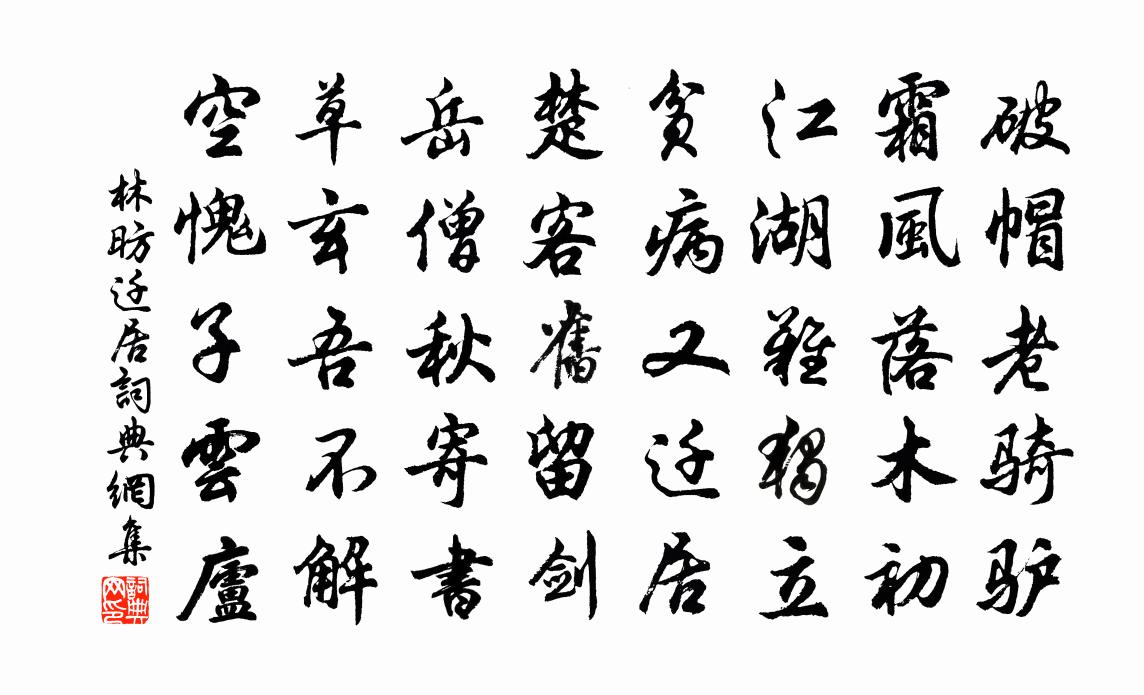 破帽老骑驴
霜風落木初
江湖難獨立
貧病又迁居
楚客舊留劍
岳僧秋寄書
草玄吾不解
空愧子雲廬
林昉迁居詞典網集
詞典網印